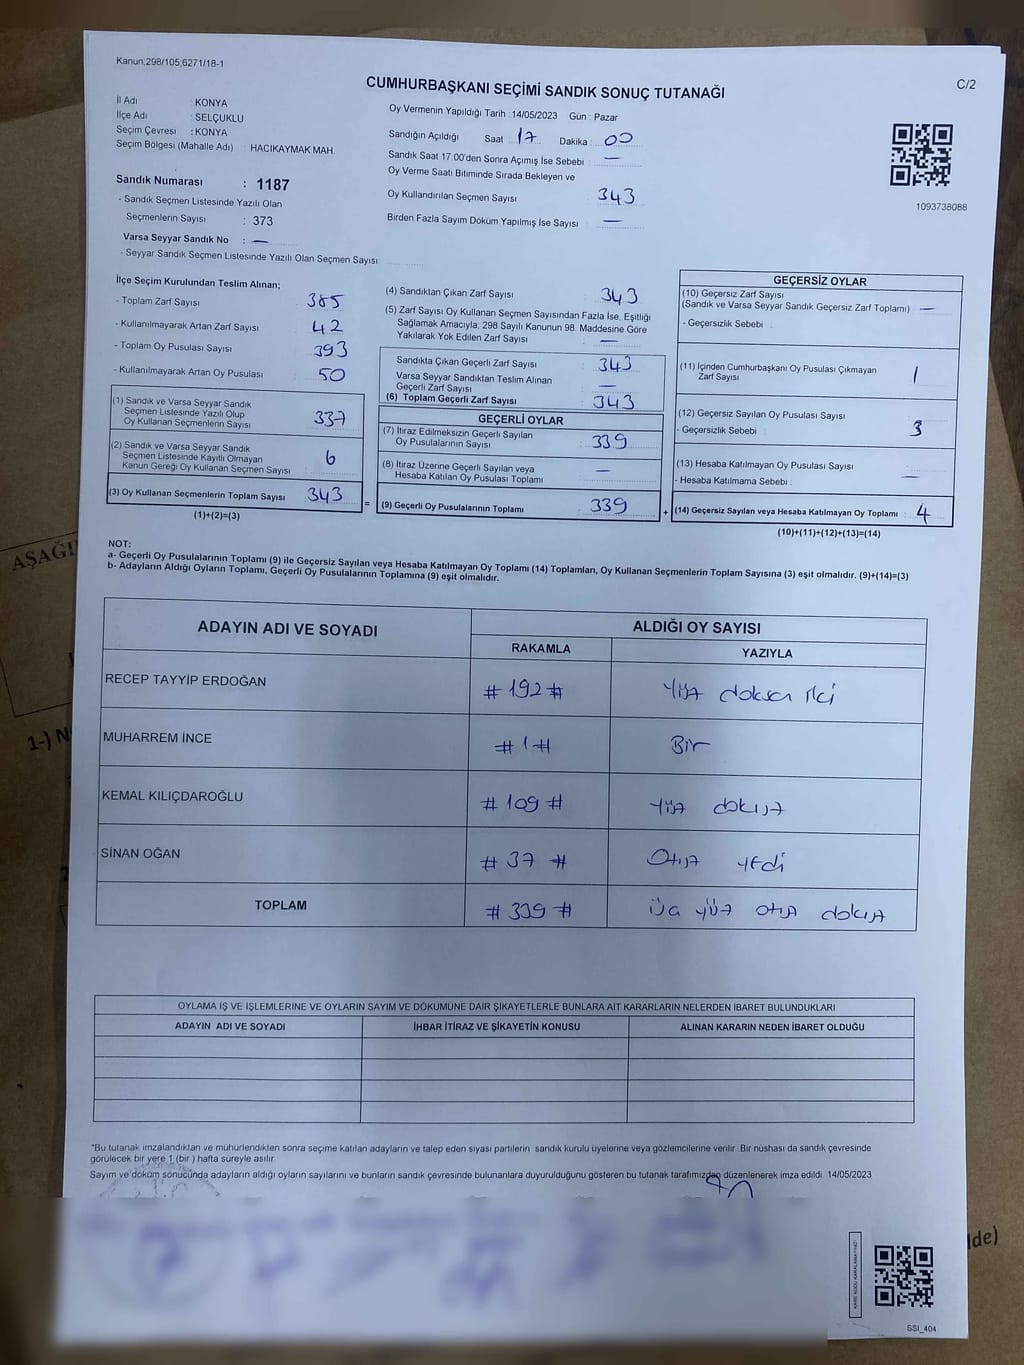 Kanun,298/105,6271/18-1
CUMHURBAŞKANI SEÇİMİ SANDIK SONUÇ TUTANAĞI
C/2
İl Adı : KONYA
İlçe Adı : SELÇUKLU
Seçim Çevresi : KONYA
Seçim Bölgesi (Mahalle Adı) : HACIKAYMAK MAH.
Oy Vermenin Yapıldığı Tarih : 14/05/2023 Gün : Pazar
Sandığın Açıldığı Saat : 17 Dakika : 00
Sandık Saat 17.00'den Sonra Açımış İse Sebebi : —
Oy Verme Saati Bitiminde Sırada Bekleyen ve
Oy Kullandırılan Seçmen Sayısı : 343
Birden Fazla Sayım Döküm Yapılmış İse Sayısı : —
1093738088
Sandık Numarası : 1187
- Sandık Seçmen Listesinde Yazılı Olan
Seçmenlerin Sayısı : 373
Varsa Seyyar Sandık No : —
- Seyyar Sandık Seçmen Listesinde Yazılı Olan Seçmen Sayısı
İlçe Seçim Kurulundan Teslim Alınan;
- Toplam Zarf Sayısı : 385
- Kullanılmayarak Artan Zarf Sayısı : 42
- Toplam Oy Pusulası Sayısı : 393
- Kullanılmayarak Artan Oy Pusulası : 50
(1) Sandık ve Varsa Seyyar Sandık
Seçmen Listesinde Yazılı Olup
Oy Kullanan Seçmenlerin Sayısı : 337
(2) Sandık ve Varsa Seyyar Sandık
Seçmen Listesinde Kayıtlı Olmayan
Kanun Gereği Oy Kullanan Seçmen Sayısı : 6
(3) Oy Kullanan Seçmenlerin Toplam Sayısı : 343
(1)+(2)=(3)
(4) Sandıktan Çıkan Zarf Sayısı : 343
(5) Zarf Sayısı Oy Kullanan Seçmen Sayısından Fazla İse, Eşitliği
Sağlamak Amacıyla, 298 Sayılı Kanunun 98. Maddesine Göre
Yakılarak Yok Edilen Zarf Sayısı : —
Sandıkta Çıkan Geçerli Zarf Sayısı : 343
Varsa Seyyar Sandıktan Teslim Alınan
Geçerli Zarf Sayısı : —
(6) Toplam Geçerli Zarf Sayısı : 343
GEÇERLİ OYLAR
(7) İtiraz Edilmeksizin Geçerli Sayılan
Oy Pusulalarının Sayısı : 339
(8) İtiraz Üzerine Geçerli Sayılan veya
Hesaba Katılan Oy Pusulası Toplamı : —
=
(9) Geçerli Oy Pusulalarının Toplamı : 339
GEÇERSİZ OYLAR
(10) Geçersiz Zarf Sayısı
(Sandık ve Varsa Seyyar Sandık Geçersiz Zarf Toplamı) : —
- Geçersizlik Sebebi :
(11) İçinden Cumhurbaşkanı Oy Pusulası Çıkmayan
Zarf Sayısı : 1
(12) Geçersiz Sayılan Oy Pusulası Sayısı : 3
- Geçersizlik Sebebi :
(13) Hesaba Katılmayan Oy Pusulası Sayısı :
- Hesaba Katılmama Sebebi : —
+
(14) Geçersiz Sayılan veya Hesaba Katılmayan Oy Toplamı : 4
(10)+(11)+(12)+(13)=(14)
NOT:
a- Geçerli Oy Pusulalarının Toplamı (9) ile Geçersiz Sayılan veya Hesaba Katılmayan Oy Toplamı (14) Toplamları, Oy Kullanan Seçmenlerin Toplam Sayısına (3) eşit olmalıdır. (9)+(14)=(3)
b- Adayların Aldığı Oyların Toplamı, Geçerli Oy Pusulalarının Toplamına (9) eşit olmalıdır.
ADAYIN ADI VE SOYADI
ALDIĞI OY SAYISI
RAKAMLA YAZIYLA
RECEP TAYYİP ERDOĞAN # 192 # Yüz doksan iki
MUHARREM İNCE # 1 # Bir
KEMAL KILIÇDAROĞLU # 109 # Yüz dokuz
SİNAN OĞAN # 37 # Otuz yedi
TOPLAM # 339 # Üç yüz otuz dokuz
OYLAMA İŞ VE İŞLEMLERİNE VE OYLARIN SAYIM VE DÖKÜMÜNE DAİR ŞİKAYETLERLE BUNLARA AİT KARARLARIN NELERDEN İBARET BULUNDUKLARI
ADAYIN ADI VE SOYADI İHBAR İTİRAZ VE ŞİKAYETİN KONUSU ALINAN KARARIN NEDEN İBARET OLDUĞU
*Bu tutanak imzalandıktan ve mühürlendikten sonra seçime katılan adayların ve talep eden siyasi partilerin sandık kurulu üyelerine veya gözlemcilerine verilir. Bir nüshası da sandık çevresinde
görülecek bir yere 1 (bir ) hafta süreyle asılır.
Sayım ve döküm sonucunda adayların aldığı oyların sayılarını ve bunların sandık çevresinde bulunanlara duyurulduğunu gösteren bu tutanak tarafımızdan düzenlenerek imza edildi. 14/05/2023
SSI_404
AŞAĞI
1-) N
lde)